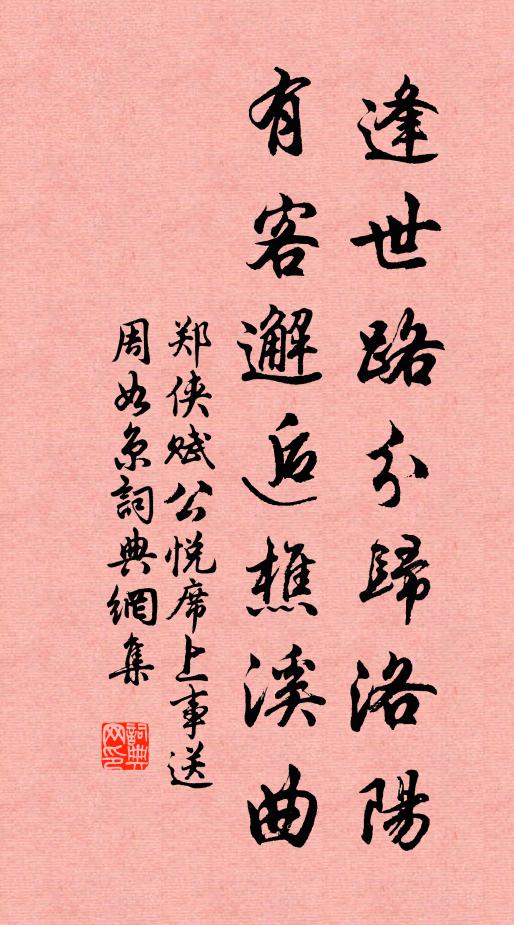 逢世路分歸洛陽
有客邂逅樵溪曲
郑侠赋公悦席上事送
周如京詞典網集
詞典網印